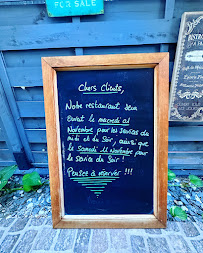 FOR SALE
Chers Clients,
Notre restaurant sera
ouvert le mercredi 01
Novembre pour les services du
midi et du soir, ainsi que
le Samedi 11 Novembre pour
le service du soir !
Pensez à réserver !!!
BISTRO